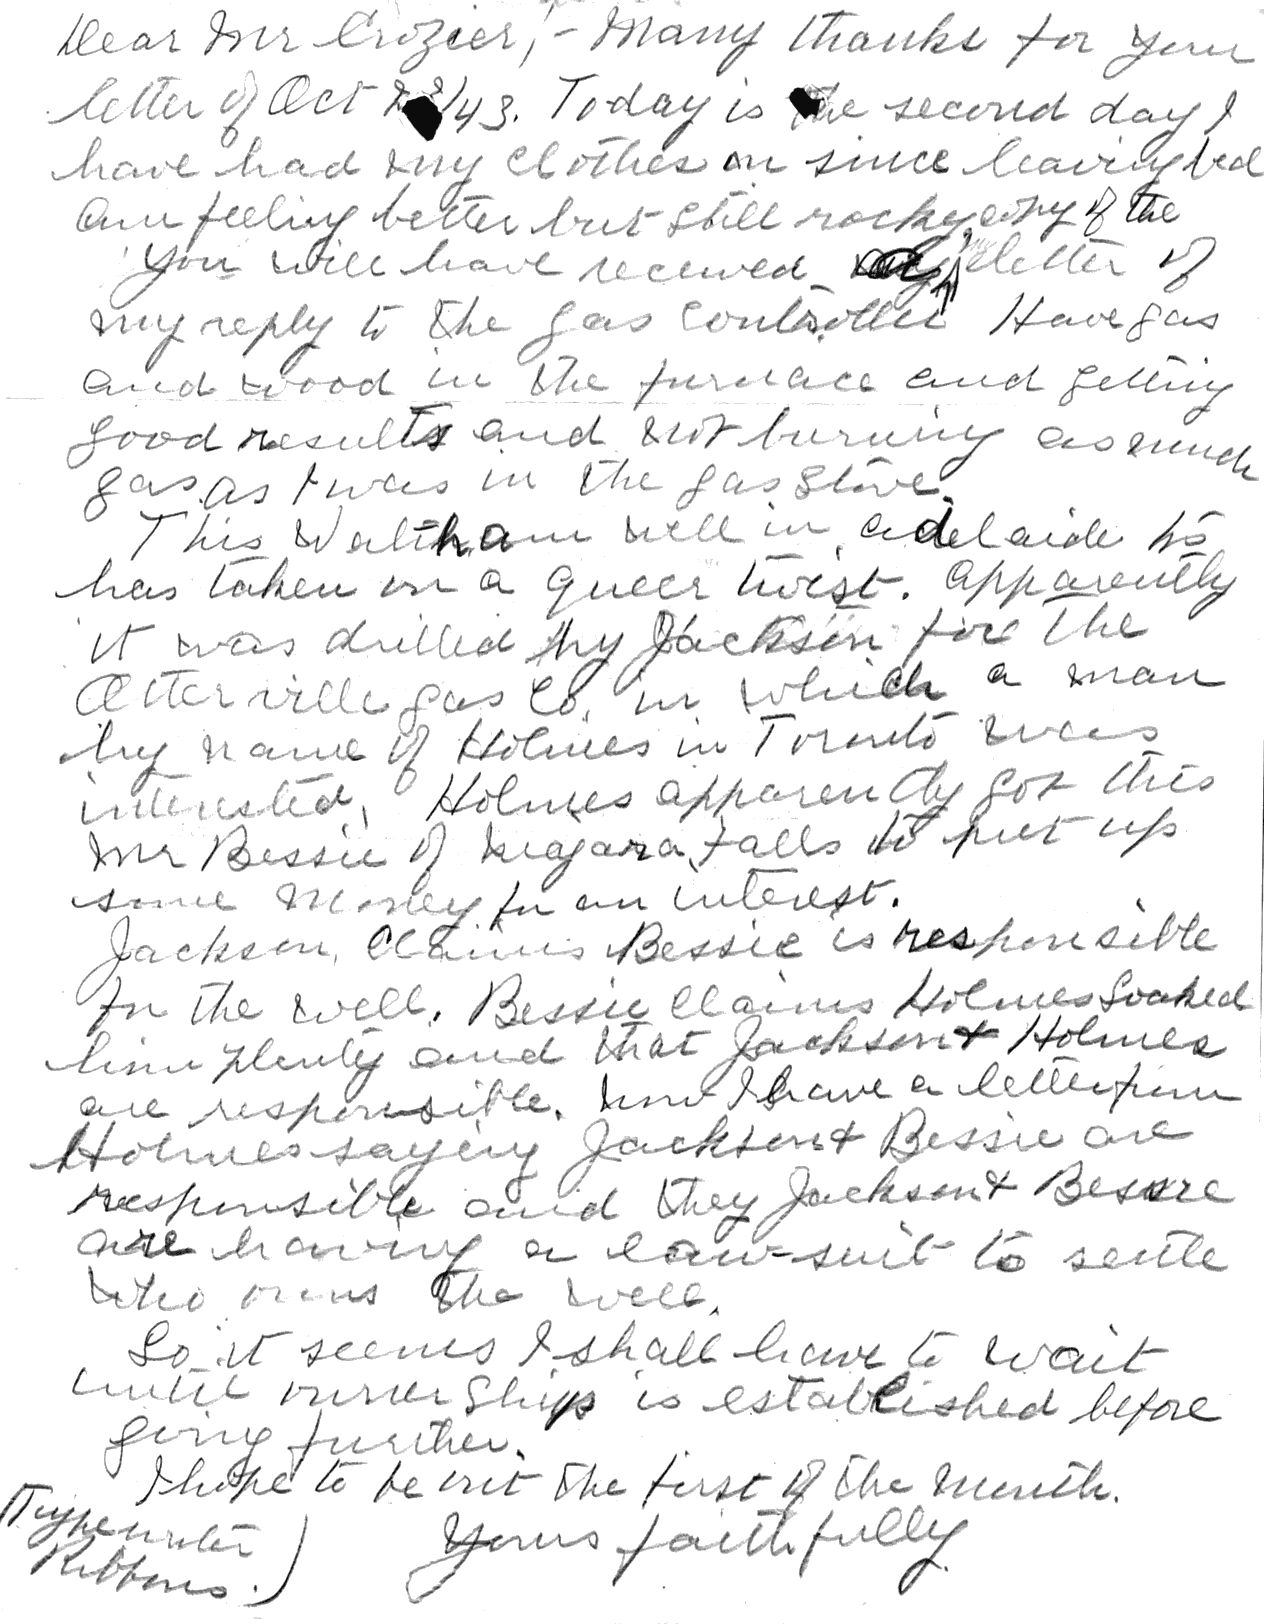 Dear Mr Crozier,- Many thanks for your
letter of Oct /43. Today is the second day I
have had my clothes on since leaving bed
am feeling better but still rocky.
copy of the
You will have received letter of
my reply to the gas controller Have gas
and wood in the furnace and getting
good results and not burning as much
gas as I was in the gas stove.
This Waltham well in adelaide
has taken on a queer twist. apparently
it was drilled by Jackson for the
Otterville gas Co. in which a man
by name of Holmes in Toronto was
interested, Holmes apparently got this
Mr Bessie of Niagara Falls to put up
some money for an interest.
Jackson, Claims Bessie is responsible
for the well. Bessie claims Holmes Soaked
him plenty and that Jackson + Holmes
are responsible. Now I have a letter from
Holmes saying Jackson + Bessie are
responsible and they Jackson + Bessie
are having a law-suit to settle
who owns the well.
So it seems I shall have to wait
until ownership is established before
going further.
I hope to be out the first of the month.
(Typewriter
Ribbons.)
Yours faithfully